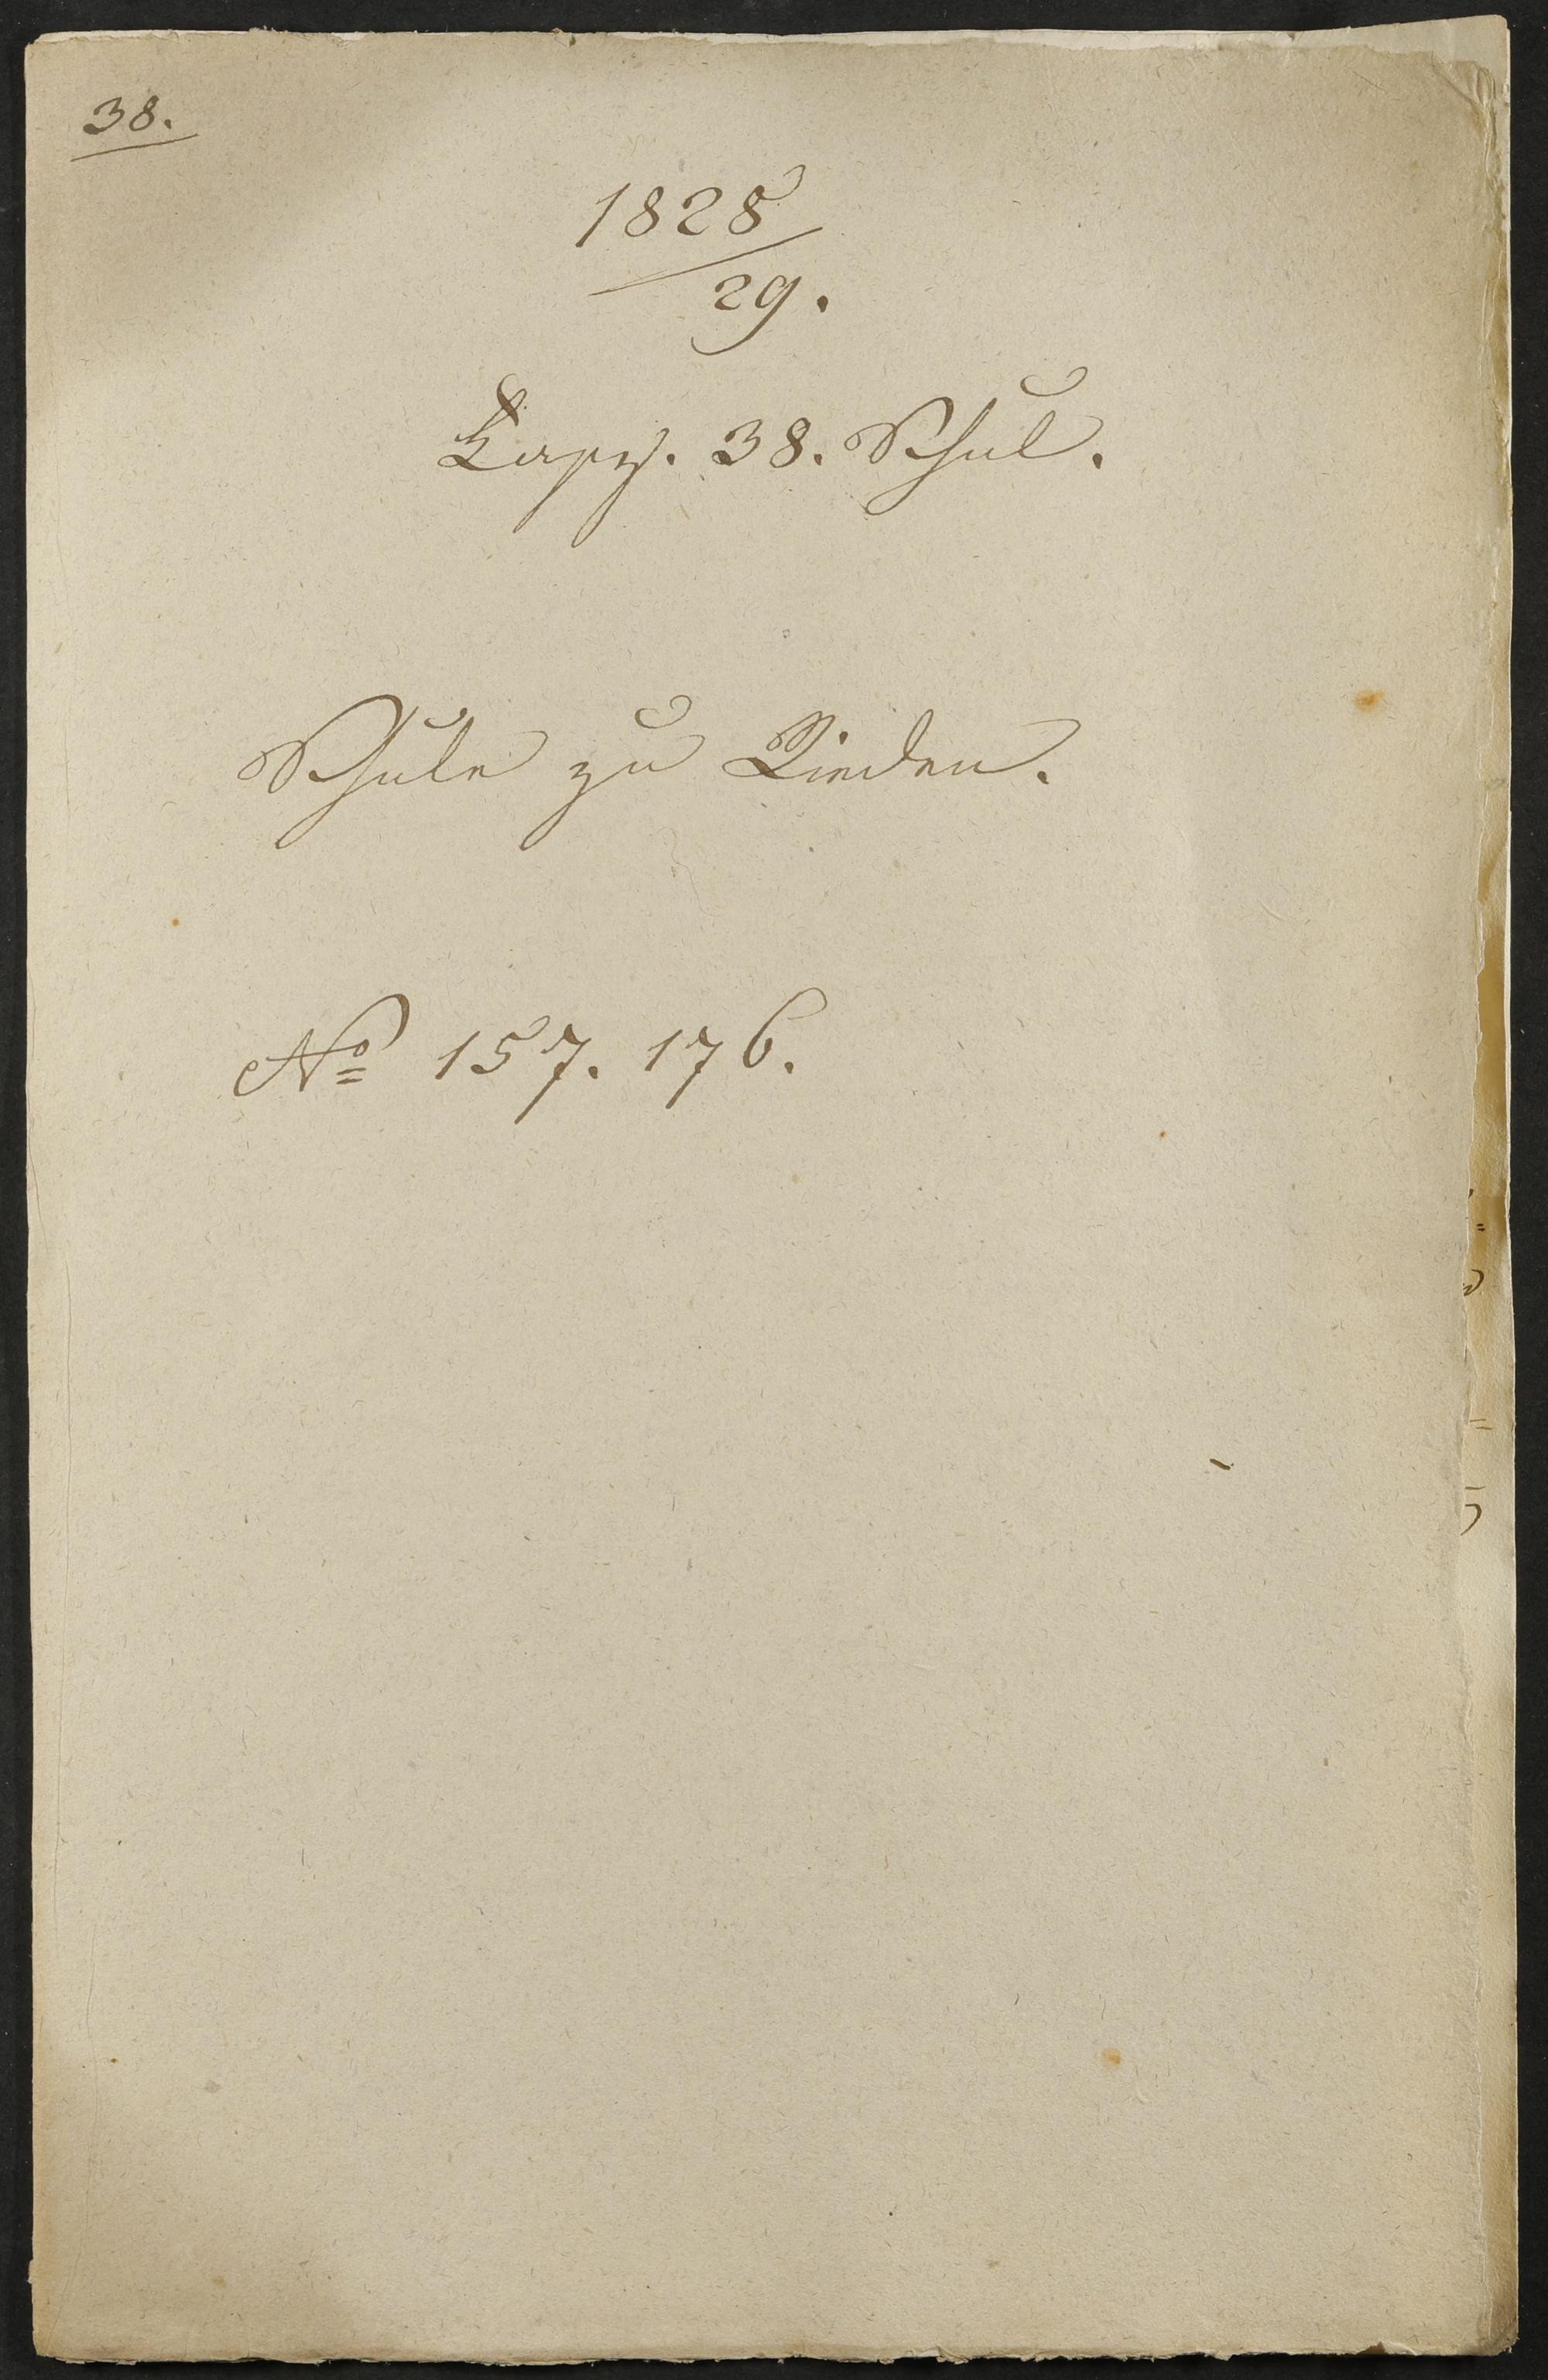 38.
1828
29.
38. Schul.
Schule zu Rieden.
No 157. 176.